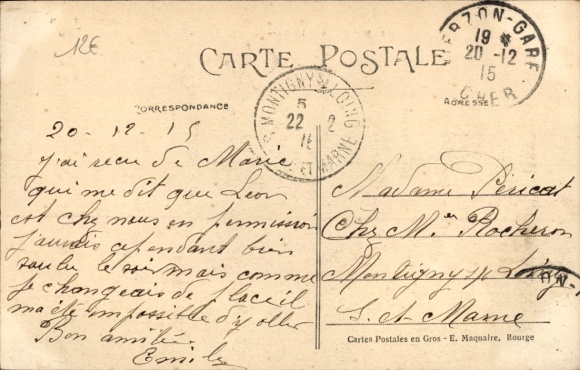 12€
CARTE POSTALE
CORRESPONDANCE
ADRESSE
VIERZON-GARE
19
20-12
15
CHER
MONTIGNY S LOING
5
22
ET MARNE
20-12-15
J'ai recu de Marie
qui me dit que Leon
est chez nous en permission
j'aurais cependant bien
voulu le voir mais comme
je changeais de place il
m'a été impossible d'y aller
Bon amitié
Emile
Madame Péricat
Chez Mr Rocheron
Montigny s/ Loing
S. et Marne
Cartes Postales en Gros - E. Maquaire, Bourge